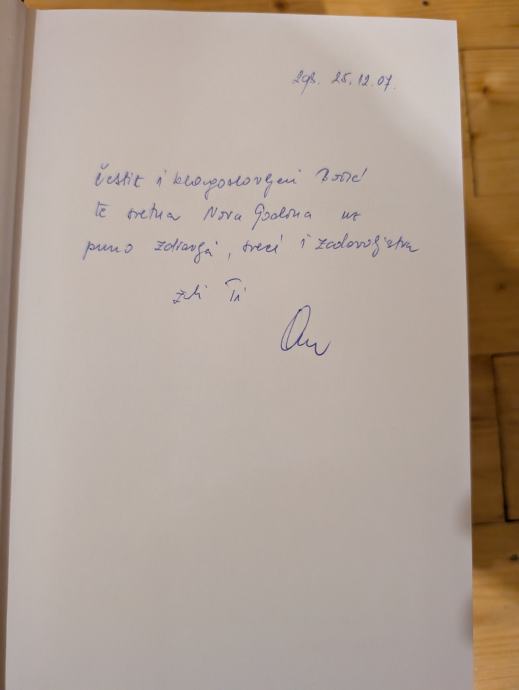 Zgb. 25.12.07.
Čestit i blagoslovljen Božić
te sretna Nova Godina uz
puno zdravlja, sreće i zadovoljstva
želi Ti